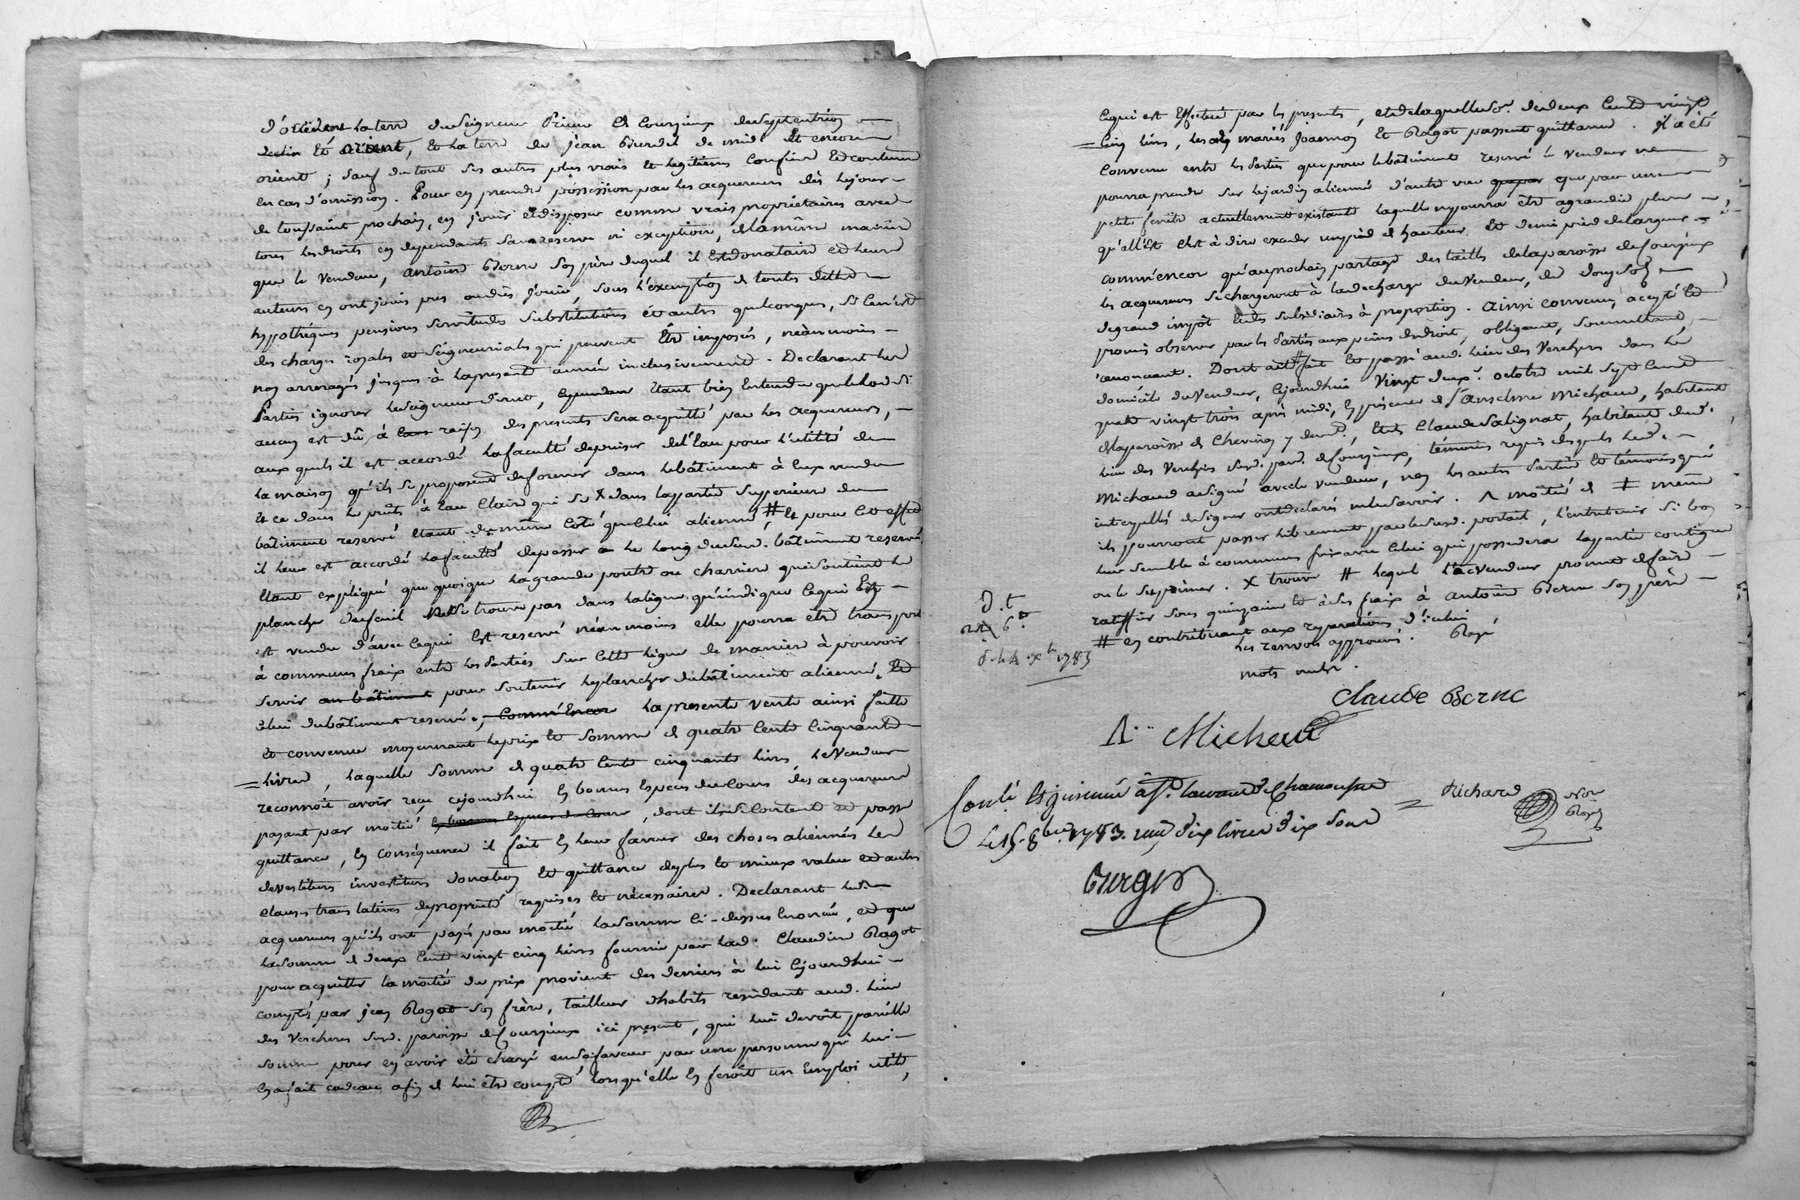 d'occident la terre du Seigneur Prieur de Courzieux du Septentrion
et orient, et la terre de jean Bierdel de midi et encore
orient ; sauf du tout ses autres plus vrais et legitimes confins et contenue
en cas d'omission. Pour en prendre possession par les acquereurs dès le jour
de toussaint prochain, en jouir et disposer comme vrais proprietaires avec
tous les droits en dependants sans reserve ni exception, de la même maniere
que le vendeur, antoine Berne son père duquel il est donataire et leurs
auteurs en ont jouis pu ou dû jouir, sous l'exemption de toutes dettes
hypotheques pensions servitudes substitutions et autres quelconques, si ce n'est
des charges royales et seigneuriales qui peuvent être imposés, néanmoins
non arreragés jusques à la presente année inclusivement. Declarant les
Parties ignorer le seigneur direct, étant bien entendu que le lod si
aucun est dû, à raison des presents sera acquitté par les acquereurs,
aux quels il est accordé la faculté de puiser de l'eau pour l'utilité de
la maison qu'ils se proposent de former dans le bâtiment à eux vendu
et ce dans le puits à eau claire qui se X dans la partie superieure du
bâtiment reservé étant du même coté que celui aliené, # et pour cet effet
il leur est accordé la faculté de passer le long du sud. bâtiment reservé
étant expliqué que quoique la grande poutre ou charriere qui soutient le
plancher du feuil ne se trouve pas dans la ligne qui indique ce qui est
vendu d'avec ce qui est reservé néanmoins elle pourra être transporté
à communs fraix entre les Parties sur cette ligne de maniere à pouvoir
servir au bâtiment pour soutenir le plancher du bâtiment aliené, et
celui du bâtiment reservé, comme encore la presente vente ainsi faitte
et convenue moyennant le prix et somme de quatre cents cinquante
livres, laquelle somme de quatre cents cinquante livres, le vendeur
reconnoit avoir reçu cejourdhui en bonnes especes du cours des acquereurs
payant par moitié en bonnes especes du cours, dont il se contente et passe
quittance, en consequence il fait en leur faveur des choses alienées les
devestitures investitures donation et quittance de plus et mieux value et autres
clauses translatives de propriété requises et nécessaires. Declarant les
acquereurs qu'ils ont payé par moitié la somme ci-dessus énoncée, et que
la somme de deux cents vingt cinq livres fournie par lad. Claudine Ragot
pour acquitter la moitié du prix provient des deniers à lui cejourdhui
comptés par jean Ragot son frère, tailleur d'habits residant aud. lieu
des Vercheres sud. paroisse de Courzieux ici present, qui lui devoit pareille
somme pour en avoir été chargé en sa faveur par une personne qui lui
en a fait cadeau afin de lui être compté lorsqu'elle en feroit un employ utile,
ce qui est effectué par les presents, et de laquelle so.e de deux cents vingt
cinq livres, lesdits mariés Joannon et Ragot passent quittance. Il a été
convenu entre les Parties que pour le bâtiment reservé le vendeur ne
pourra prendre sur le jardin aliené d'autre vue que par une
petite fenêtre actuellement existante laquelle ne pourra être agrandie plus
qu'elle l'est c'est à dire exceder un pied de hauteur et demi pied de largeur
comm'encor qu'au prochain partage des tailles de la paroisse de Courzieux
les acquereurs se chargeront à la decharge du vendeur, de douze sols
de grand impôt et des subsidiaires à proportion. Ainsi convenu, accepté et
promis observer par les Parties aux peines de droit, obligeant, soumettant,
renonçant. Dont acte fait et passé aud. lieu des Verchers dans le
domicile du vendeur, cejourdhui vingt deux.e octobre mil sept cents
quatre vingt trois après midi, en presence de s.r Anselme Michaud, habitant
de la paroisse de Chevinay, et de Claude Salignat, habitant dud.
lieu des Verchers sud. par. de Courzieux, témoins requis desquels led.
Michaud a signé avec le vendeur, non les autres Parties et témoins qui
interpellés de signer ont déclaré ne le savoir. Λ moitié de ‡ même
ils pourront passer librement par led. portail, l'entretenir si bon
leur semble à communs fraix avec celui qui possedera la partie contigue
ou le supprimer. X trouve # lequel le vendeur promet de faire
ratiffier sous quinzaine et à ses fraix à antoine Berne son père
# en contribuant aux reparations d'icelui
les renvois approuvés. Rayé
mots nuls.
D. t
Claude Berne
A.. Michaud
Conlé et insinué à St. Laurent de Chamousset
Le 15. 8bre. 1783. reçu dix livres dix sous
Richard